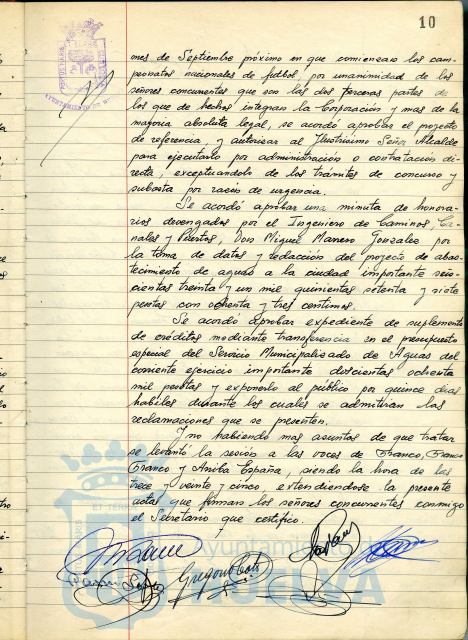 10
mes de Septiembre próximo en que comienzan los cam-
peonatos nacionales de futbol, por unanimidad de los
señores concurrentes que son las dos terceras partes de
los que de hechos integran la Corporación y mas de la
mayoria absoluta legal, se acordó aprobar el proyecto
de referencia, y autorizar al Ilustrisimo Señor Alcalde
para ejecutarlo por administración o contratación di-
recta, exceptuandolo de los tramites de concurso y
subasta por razón de urgencia.
Se acordó aprobar una minuta de honora-
rios devengados por el Ingeniero de Caminos Ca-
nales y Puertos, Don Miguel Manero Gonzalez por
la toma de datos y redacción del proyecto de abas-
tecimiento de aguas a la ciudad importante seis-
cientas treinta y un mil quinientas setenta y siete
pesetas con ochenta y tres centimos.
Se acordó aprobar expediente de suplemento
de créditos mediante transferencia en el presupuesto
especial del Servicio Municipalizado de Aguas del
corriente ejercicio importante doscientas ochenta
mil pesetas y exponerlo al público por quince dias
habiles durante los cuales se admitiran las
reclamaciones que se presenten.
Y no habiendo mas asuntos de que tratar
se levantó la sesión a las voces de Franco, Franco
Franco y Arriba España, siendo la hora de las
trece y veinte y cinco, extendiendose la presente
acta que firman los señores concurrentes conmigo
el Secretario que certifico.
Ayuntamiento de
HUELVA